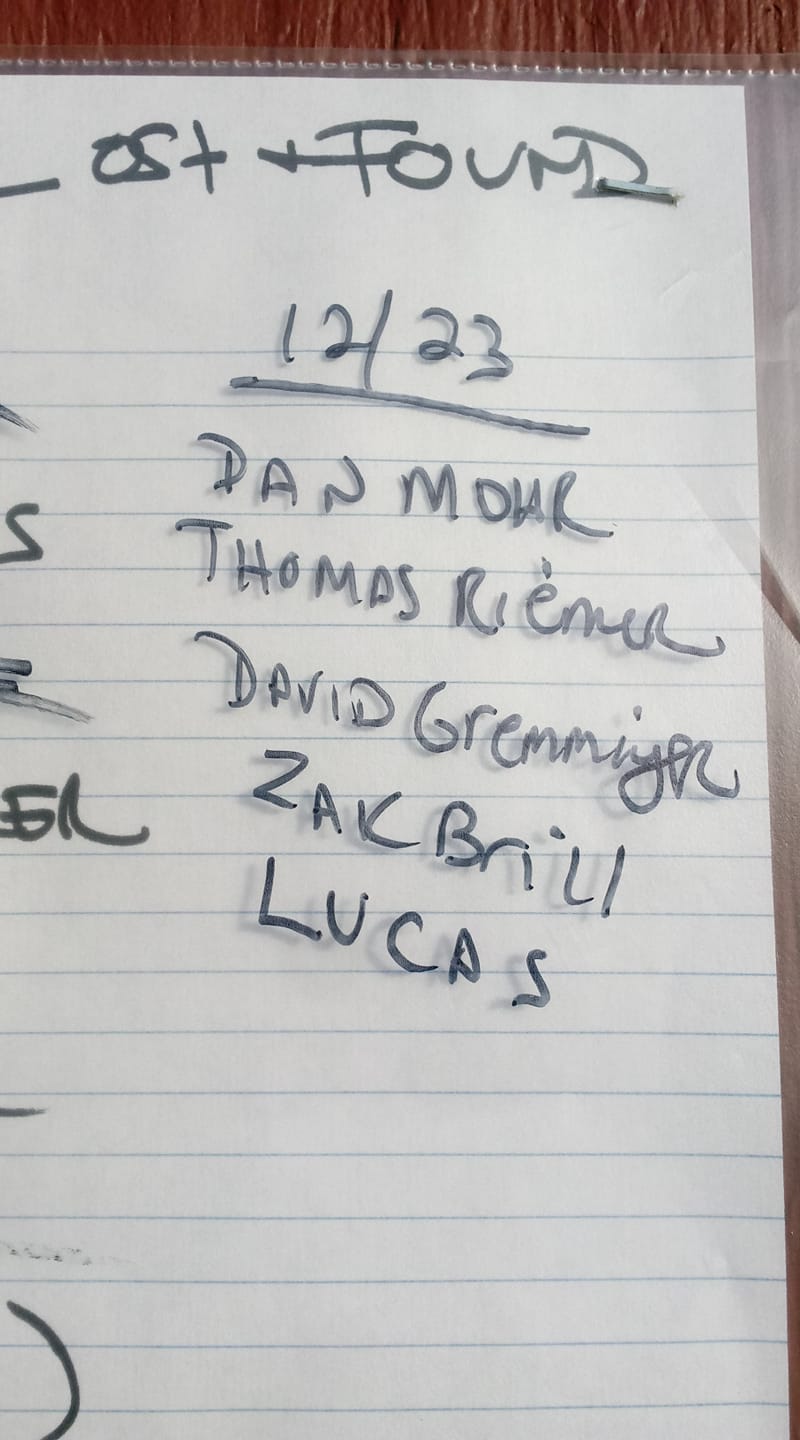 Lost + FOUND
12/23
DAN MOHR
S
THOMAS RiemeR
DAVID GremmiygeR
ER
ZAK Brill
LUCAS